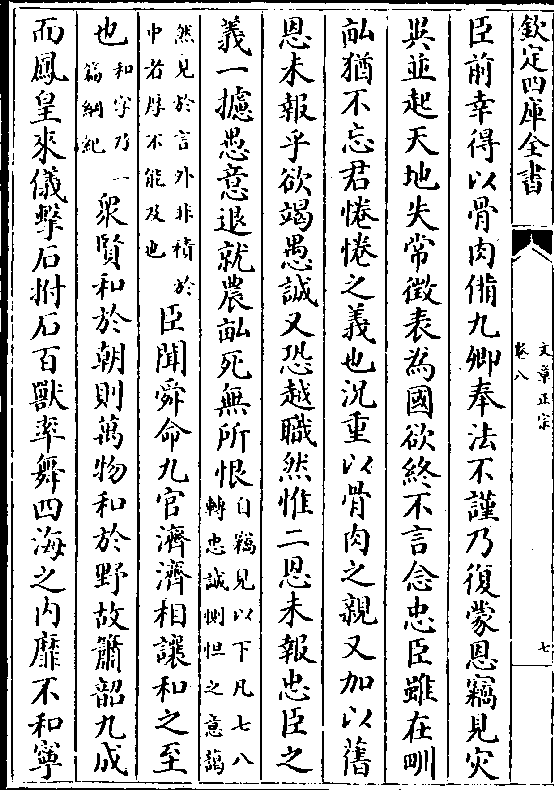 欽定四庫全書
文章正宗
卷八
七
臣前幸得以骨肉備九卿奉法不謹乃復蒙恩竊見灾
異並起天地失常徵表為國欲終不言念忠臣雖在甽
畝猶不忘君惓惓之義也况重以骨肉之親又加以舊
恩未報乎欲竭愚誠又恐越職然惟二恩未報忠臣之
義一攄愚意退就農畝死無所恨自竊見以下凡七八
轉忠誠惻怛之意藹
然見於言外非積於
中者厚不能及也
臣聞舜命九官濟濟相讓和之至
也和字乃一
篇綱紀
衆賢和於朝則萬物和於野故簫韶九成
而鳳皇來儀擊石拊石百獸率舞四海之内靡不和寧